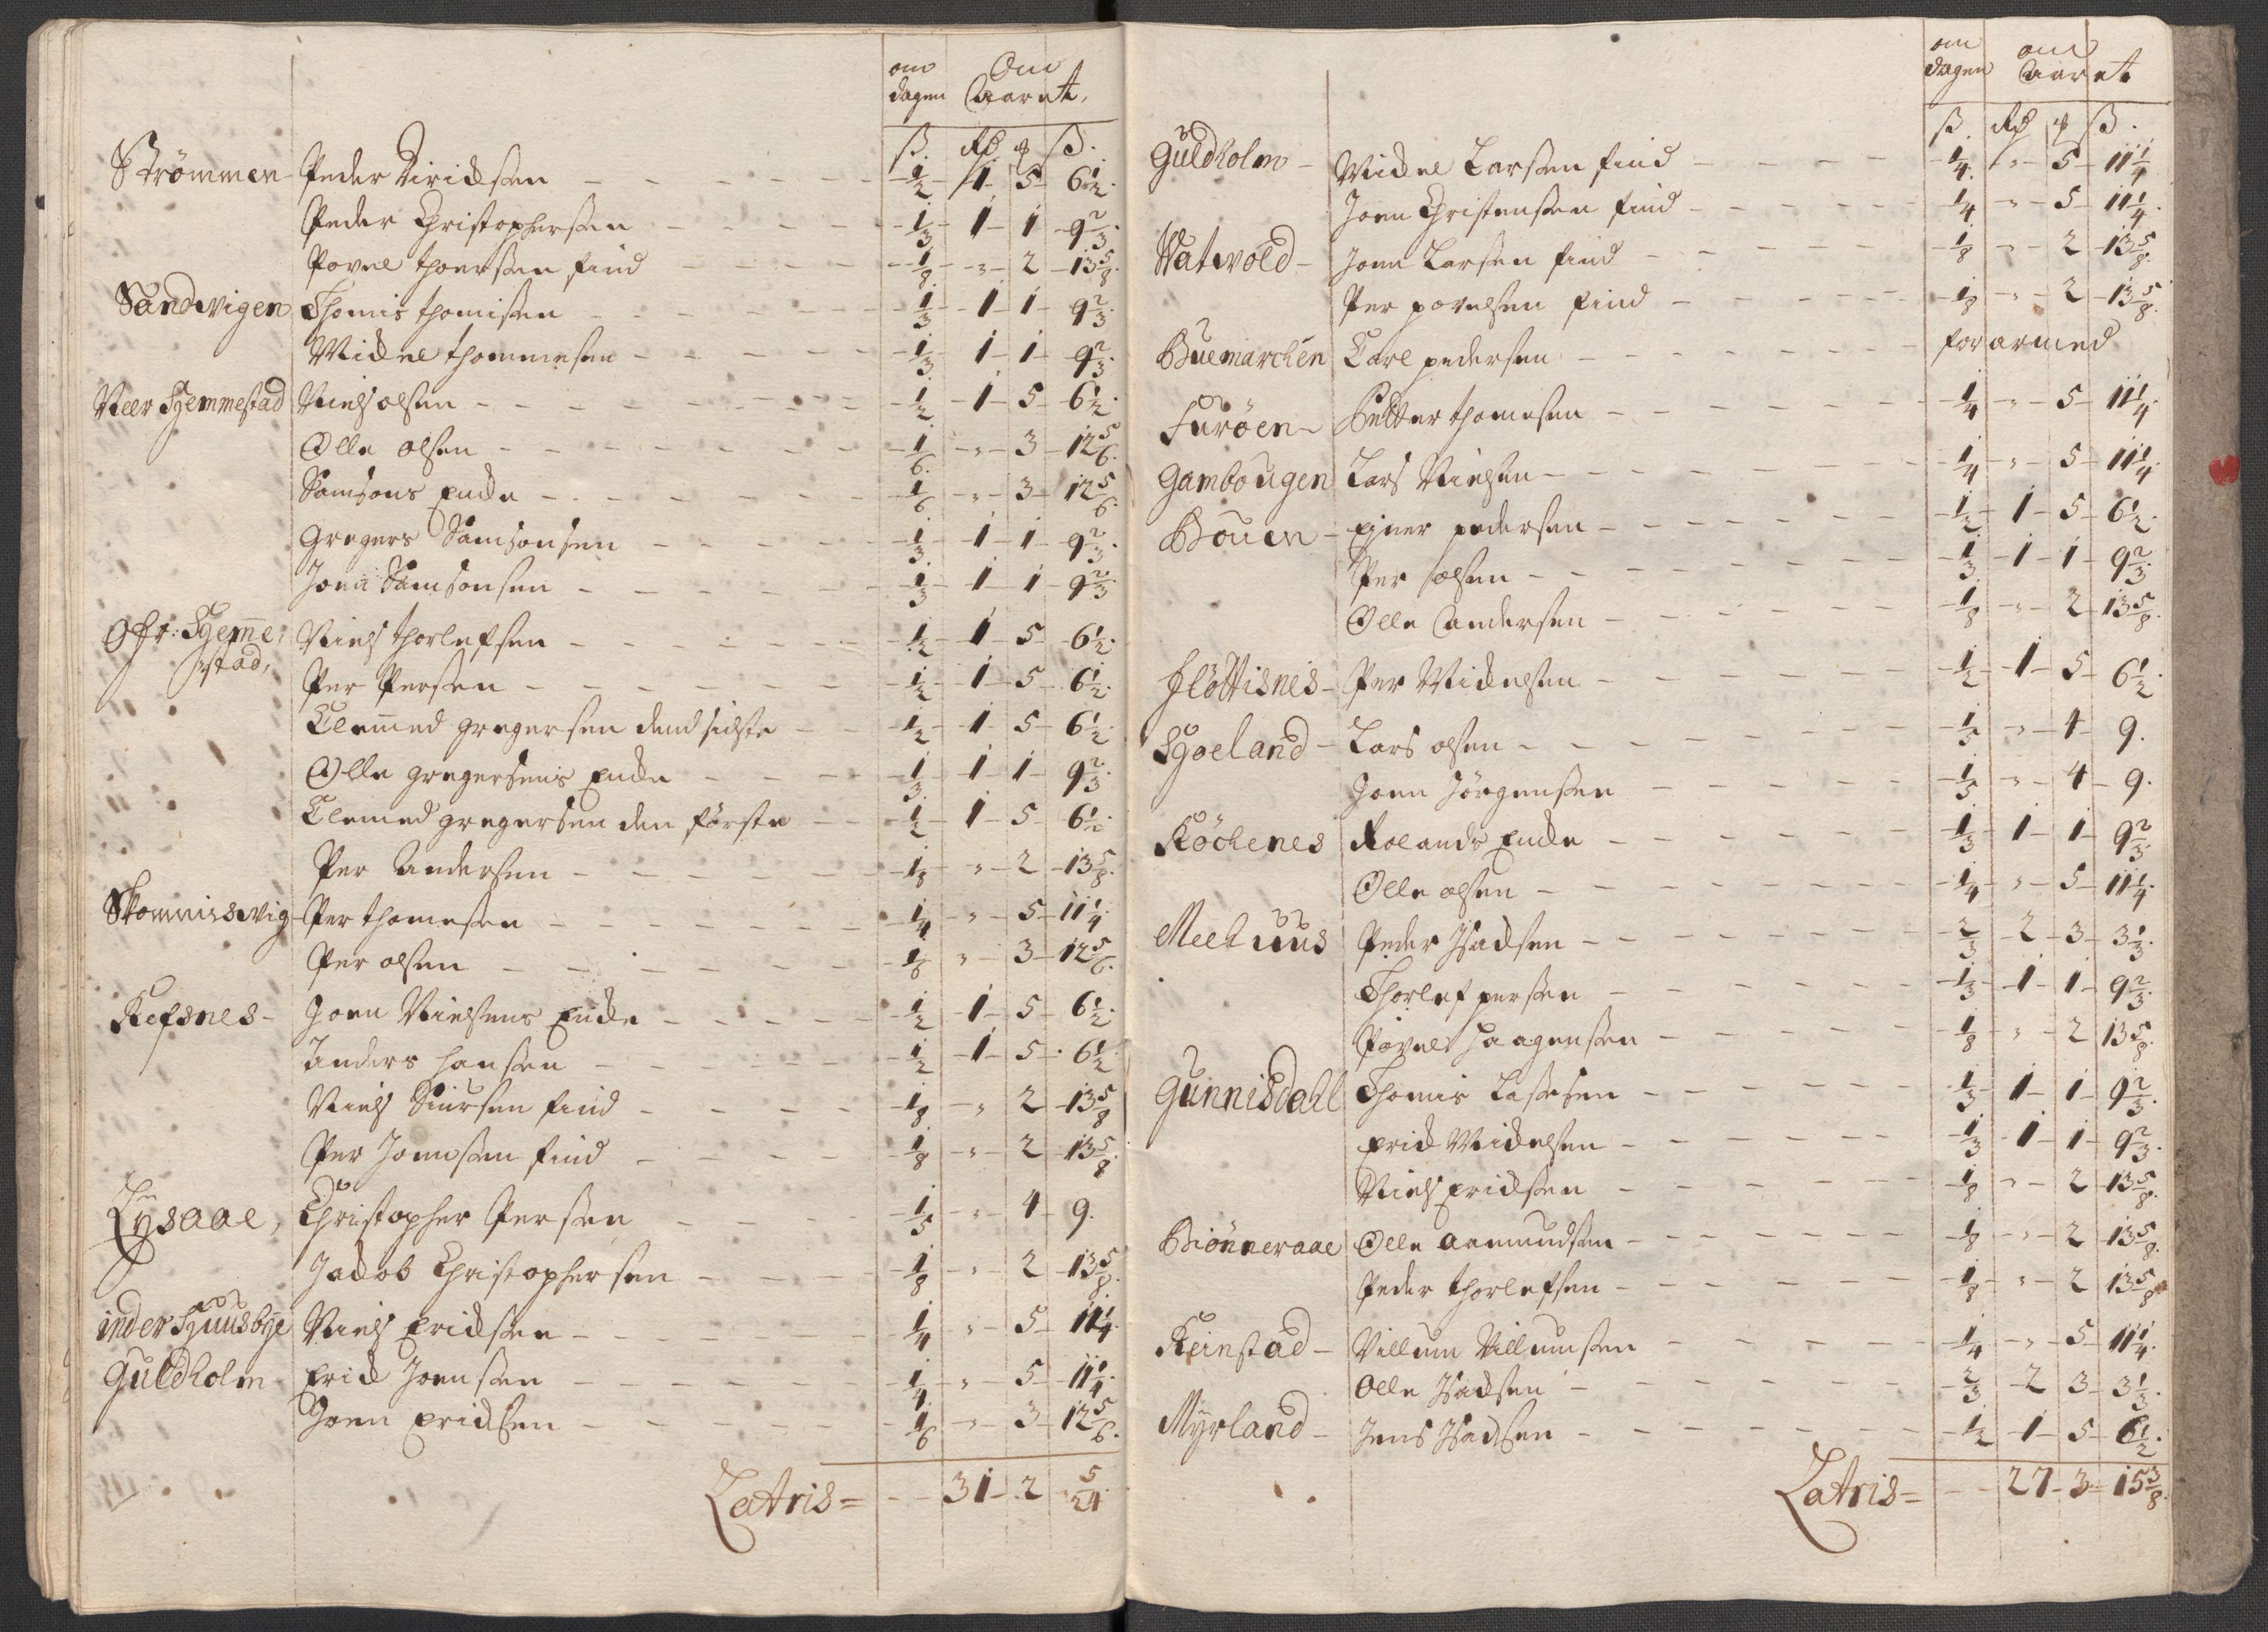 om Om
dagen Aaret,
ß. Rd ₰ ß.
Strømmen - Peder Diricksen - 1/2 - 1 - 5 - 6 1/2.
Peder Christophersen - 1/3 - 1 - 1 - 9 2/3.
Povel thoersen find - 1/8 - " - 2 - 13 5/8.
Sandwigen Thomis thomisen - 1/3 - 1 - 1 - 9 2/3.
Mickel thommesen - 1/3 - 1 - 1 - 9 2/3.
Neer Hiemmestad Niels olsen - 1/2 - 1 - 5 - 6 1/2.
Olle olsen - 1/6 - " - 3 - 12 5/6.
Samsons Encke - 1/6 - " - 3 - 12 5/6.
Gregers Samsonsen - 1/3 - 1 - 1 - 9 2/3.
Joen Samsonsen - 1/3 - 1 - 1 - 9 2/3
Ofr: Hjeme: Niels thorlefsen - 1/2 - 1 - 5 - 6 1/2.
stad, Per Persen - 1/2 - 1 - 5 - 6 1/2.
Clemed gregersen dend sidste - 1/2 - 1 - 5 - 6 1/2.
Olle gregersens Encke - 1/3 - 1 - 1 - 9 2/3.
Clemed gregersen den første - 1/2 - 1 - 5 - 6 1/2.
Per Andersen - 1/8 - " - 2 - 13 5/8.
Per thomesen - 1/4 - " - 5 - 11 1/4.
Per olsen - 1/6 - " - 3 - 12 5/6.
Refsnes - Joen Nielsens Encke - 1/2 - 1 - 5 - 6 1/2.
Anders hansen - 1/2 - 1 - 5 - 6 1/2
Niels Siursen find - 1/8 - " - 2 - 13 5/8
Per Joensen find - 1/8 - " - 2 - 13 5/8.
Lysaae, Christopher Persen - 1/5 - " - 4 - 9.
Jacob Christophersen - 1/8 - " - 2 - 13 5/8.
inder Huusbye Niels Ericksen - 1/4 - " - 5 - 11 1/4.
Guldholm Erick Joensen - 1/4 - " - 5 - 11 1/4.
Joen Ericksen - 1/6 - " - 3 - 12 5/6.
Latris = - 31 - 2 - 5/24
om om
dagen Aaret
ß. Rd ₰ ß.
Guldholm - Mickel Larsen find - 1/4. " - 5 - 11 1/4
Joen Christensen find - 1/4 " - 5 - 11 1/4.
Watwold - Joen Larsen find - 1/8 " - 2 - 13 5/8.
Per povelsen find - 1/8 - " - 2 - 13 5/8.
Buemarchen Carl pedersen - forarmed
Furöen - Petter thomesen - 1/4 - " - 5 - 11 1/4.
Gambougen Lars Nielsen - 1/4 - " - 5 - 11 1/4.
Bouen - Ejner pedersen - 1/2 - 1 - 5 - 6 1/2.
Per olsen - 1/3 - 1 - 1 - 9 2/3.
Olle Andersen - 1/8 - " - 2 - 13 5/8.
Flöttisnes - Per Mickelsen - 1/2 - 1 - 5 - 6 1/2.
Lars olsen - 1/5 - " - 4 - 9.
Joen Jörgensen - 1/5 - " - 4 - 9.
Röchenes Rolands Encke - 1/3 - 1 - 1 - 9 2/3.
Olle olsen - 1/4 - " - 5 - 11 1/4.
Meehuus Peder Isacksen - 2/3 - 2 - 3 - 3 1/3.
Thorlef persen - 1/3 - 1 - 1 - 9 2/3.
Povel haagensen - 1/8 - " - 2 - 13 5/8.
Gunnisdahl Thomis Lassesen - 1/3 - 1 - 1 - 9 2/3.
Erick Mickelsen - 1/3 - 1 - 1 - 9 2/3.
Niels Ericksen - 1/8 - " - 2 - 13 5/8.
Biönneraae Olle Aamundsen - 1/8 - " - 2 - 13 5/8.
Peder thorlefsen - 1/8 - " - 2 13 5/8
Reinstad - Villum Villumsen - 1/4 - " - 5 - 11 1/4.
Olle Isacksen - 2/3 - 2 3 - 3 1/3.
Myrland - Jens Isacksen - 1/2 - 1 - 5 - 6 1/2.
Latris = - 27 - 3 - 15 3/8.